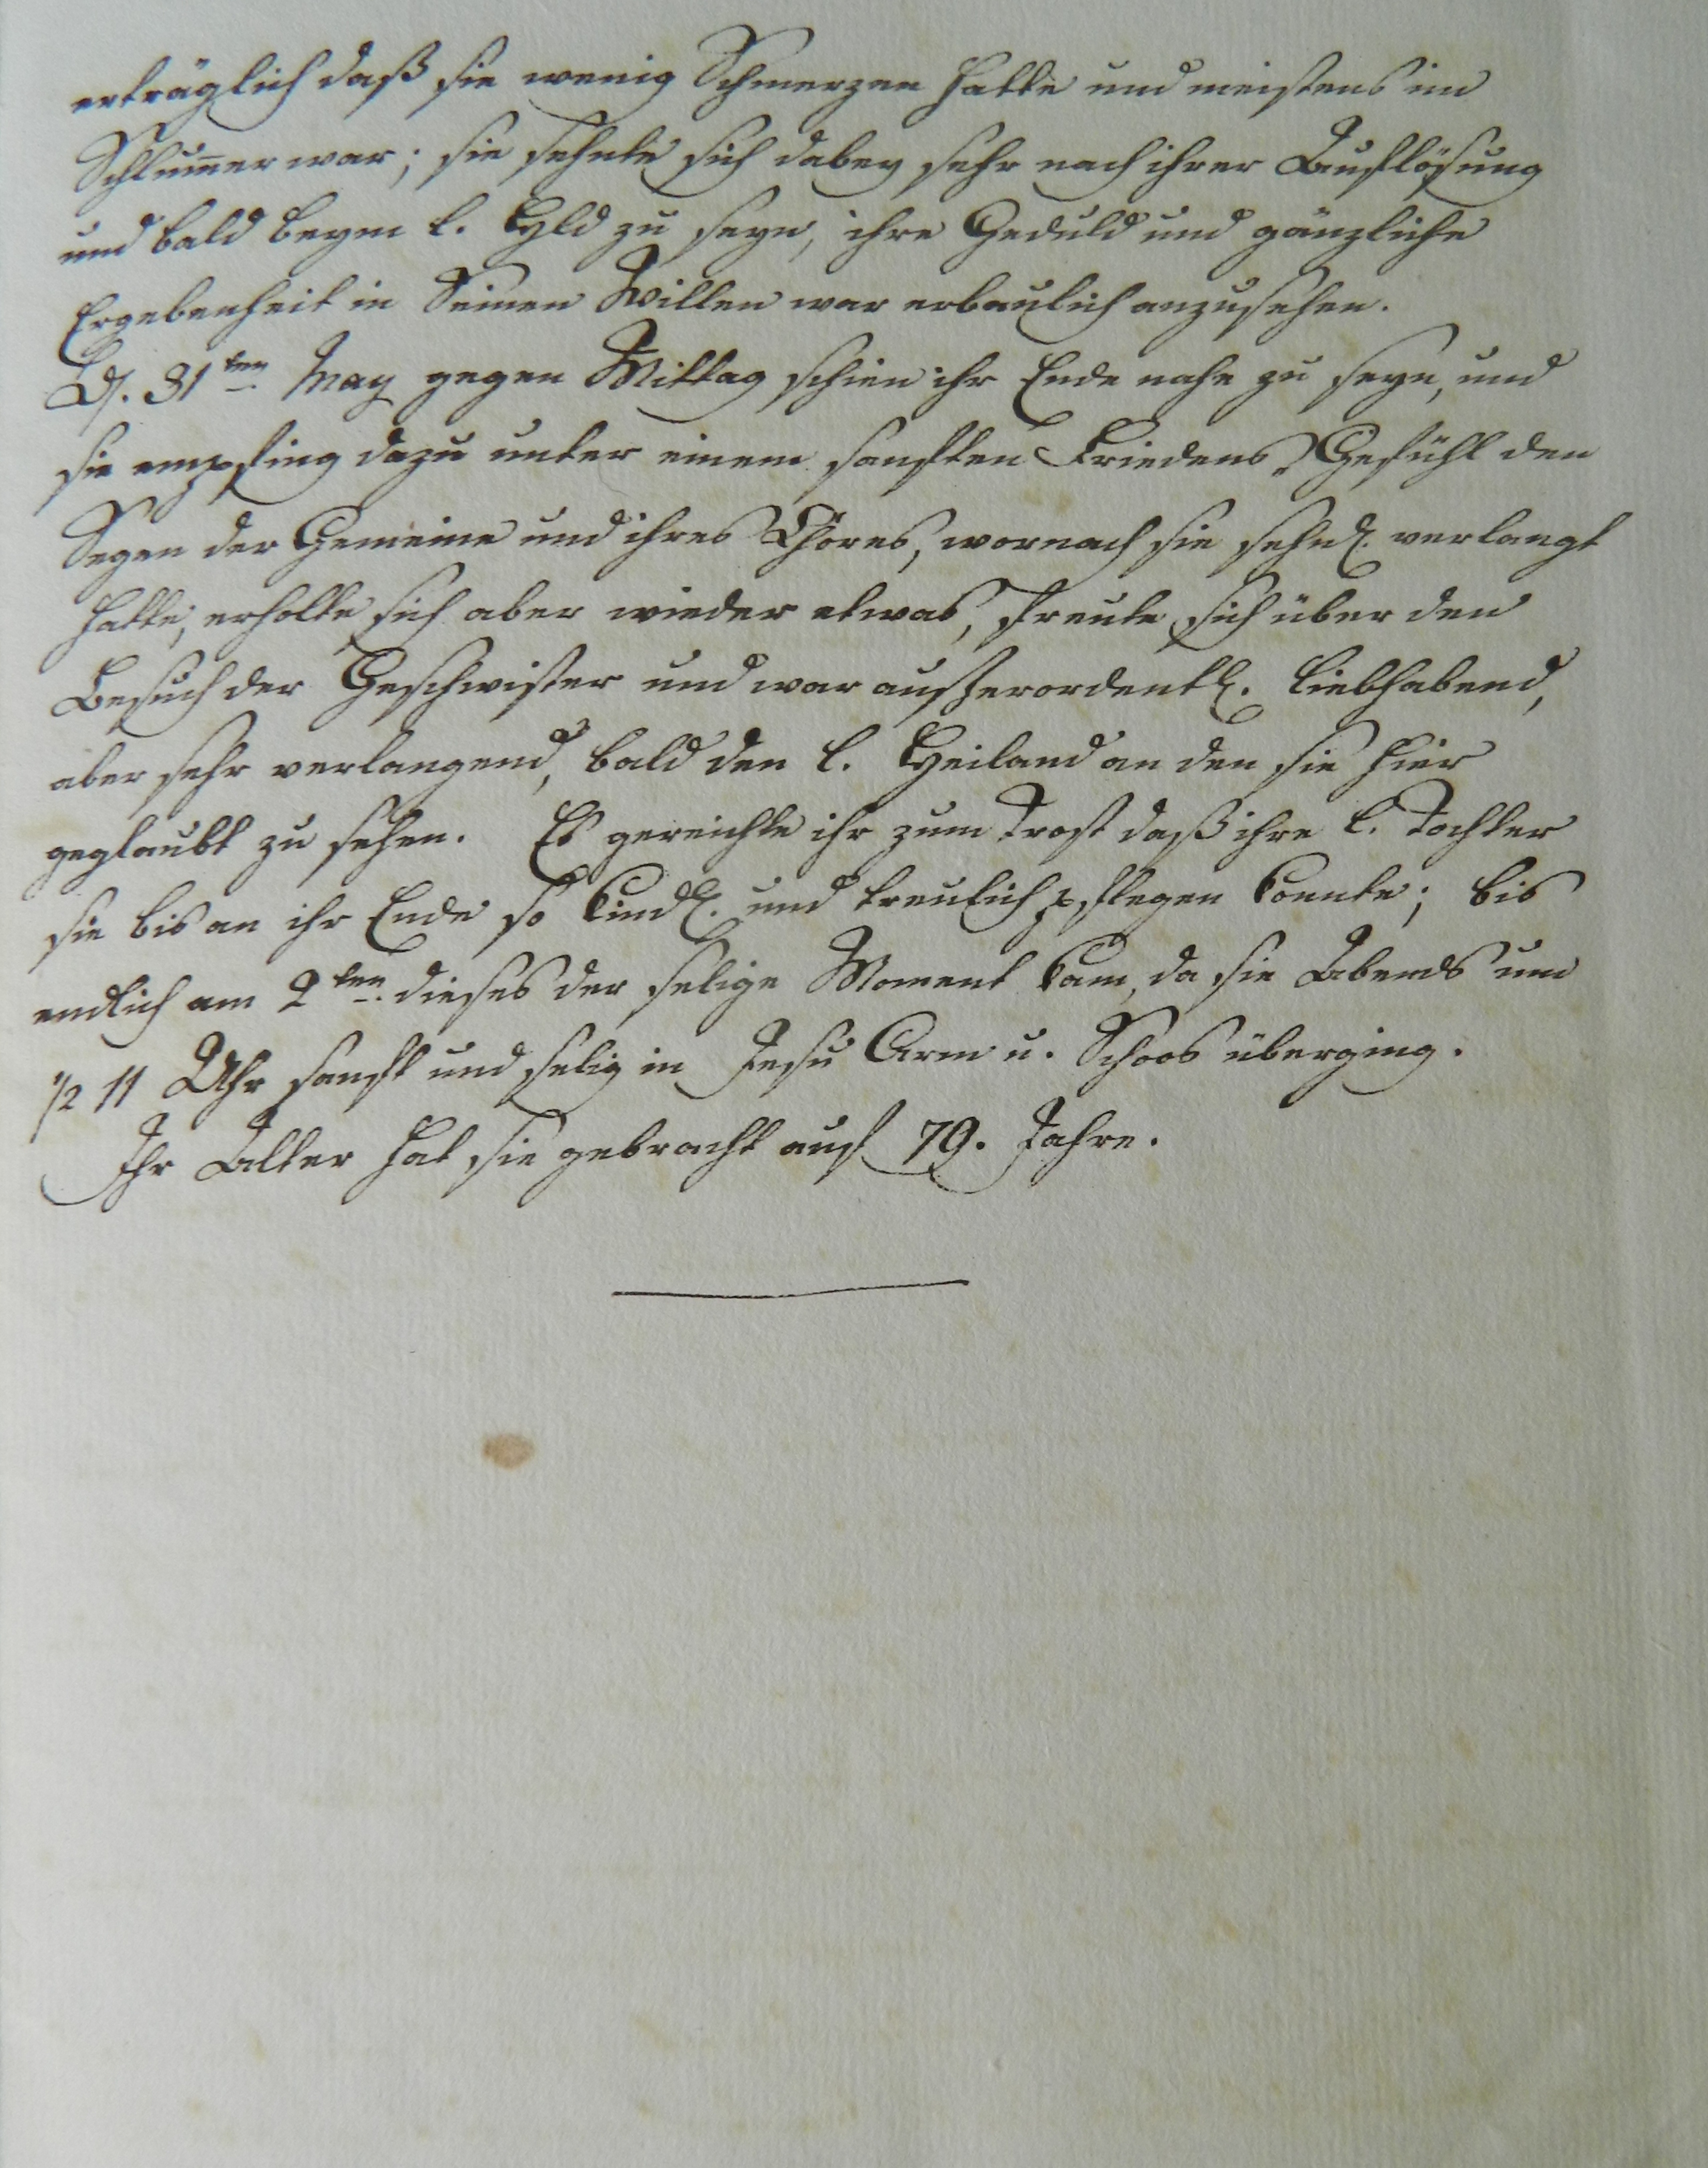 erträglich daß sie wenig Schmerzen hatte und meistens im
Schlum̅er war; sie sehnte sich dabey sehr nach ihrer Auflösung
und bald beym l. Hld zu seyn, ihre Geduld und gänzliche
Ergebenheit in Seinen Willen war erbaulich anzusehen.
D. 31ten May gegen Mittag schien ihr Ende nahe zu seyn, und
sie empfing dazu unter einem sanften Friedens-Gefühl den
Segen der Gemeine und ihres Chores, wornach sie sehnl. verlangt
hatte, erholte sich aber wieder etwas, freute sich über den
Besuch der Geschwister und war außerordentl. liebhabend,
aber sehr verlangend, bald den l. Heiland an den sie hier
geglaubt zu sehen. Es gereichte ihr zum Trost daß ihre l. Tochter
sie bis an ihr Ende so kindl. und treulich pflegen konnte; bis
endlich am 2ten dieses der selige Moment kam, da sie Abends um
1/2 11 Uhr sanft und selig in Jesu Arm u. Schoos überging.
Ihr Alter hat sie gebracht auf 79. Jahre.